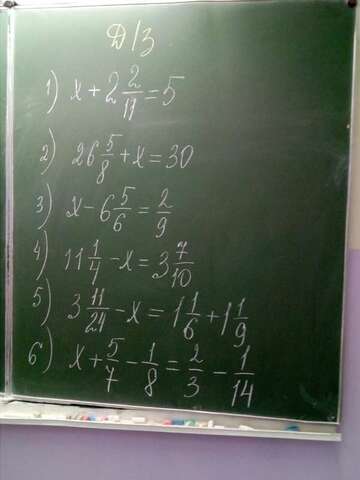 Д/З
1) x + 2 2/11 = 5
2) 26 5/8 + x = 30
3) x - 6 5/6 = 2/9
4) 11 1/4 - x = 3 7/10
5) 3 11/24 - x = 1 1/6 + 1 1/9
6) x + 5/7 - 1/8 = 2/3 - 1/14